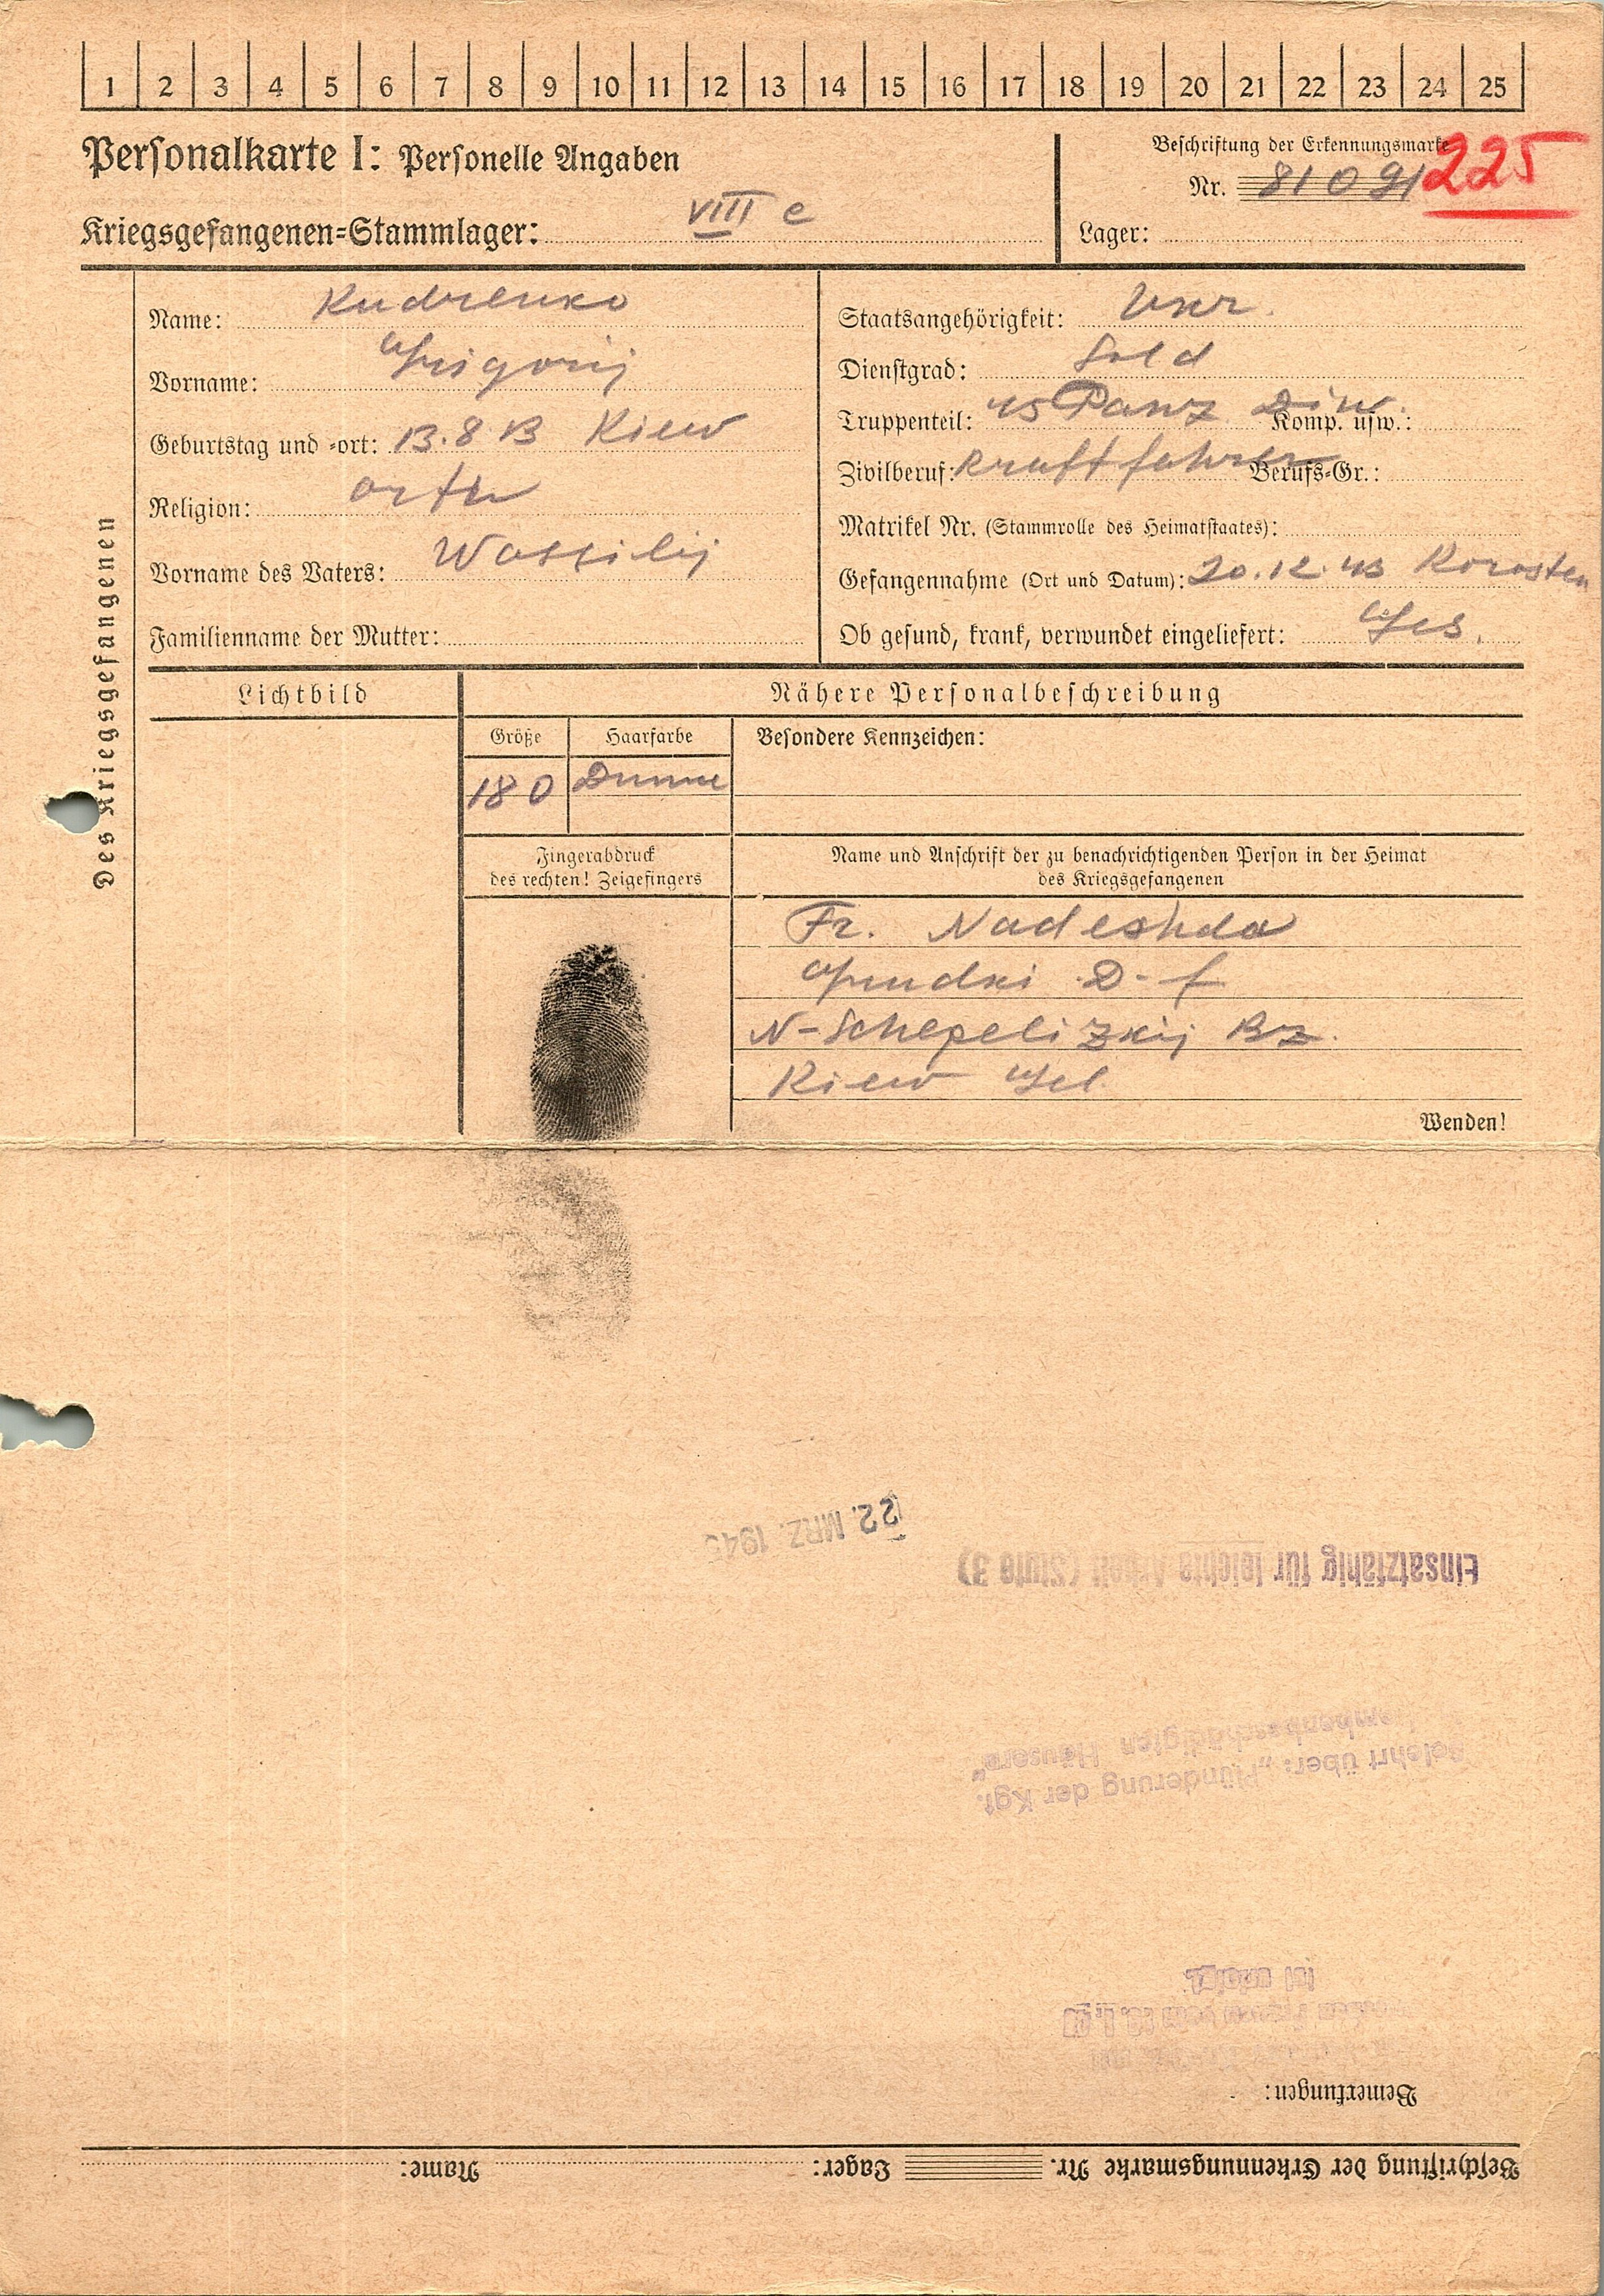 1 2 3 4 5 6 7 8 9 10 11 12 13 14 15 16 17 18 19 20 21 22 23 24 25
Personalkarte I: Personelle Angaben
Beschriftung der Erkennungsmarke
Nr. 81091
225
Kriegsgefangenen-Stammlager: VIII c
Lager:
Des Kriegsgefangenen
Name: Kudrenko
Vorname: Grigorij
Geburtstag und -ort: 13.8.13 Kiew
Religion: orth
Vorname des Vaters: Wassilij
Familienname der Mutter:
Staatsangehörigkeit: Ukr.
Dienstgrad: Sold
Truppenteil: 45 Panz Diw. Komp. usw.:
Zivilberuf: Kraftfahrer Berufs-Gr.:
Matrikel Nr. (Stammrolle des Heimatstaates):
Gefangennahme (Ort und Datum): 20.12.43 Korosten
Ob gesund, krank, verwundet eingeliefert: Ges.
Lichtbild
Nähere Personalbeschreibung
Größe Haarfarbe Besondere Kennzeichen:
180
Fingerabdruck
des rechten! Zeigefingers
Name und Anschrift der zu benachrichtigenden Person in der Heimat
des Kriegsgefangenen
Fr. Nadeshda
D-f
N-Schepelizkij Bz.
Kiew Gel.
Wenden!
22. MRZ. 194
Einsatzfähig für leichte Arbeit (Stufe 3)
Belehrt über: „Plünderung der Kgf.
bombenbeschädigten Häusern“
Bemerkungen:
Beschriftung der Erkennungsmarke Nr. Lager: Name: